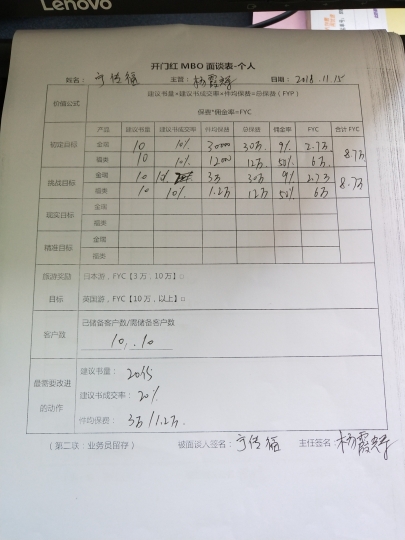 Lenovo
开门红 MBO 面谈表-个人
姓名： 主管：杨霞 日期：2018.11.15
价值公式 建议书量*建议书成交率*件均保费=总保费（FYP）
保费*佣金率=FYC
产品 建议书量 建议书成交率 件均保费 总保费 佣金率 FYC 合计 FYC
初定目标 金瑞 10 10% 30000 30万 9% 2.7万 8.7万
福类 10 10% 12000 12万 50% 6万
挑战目标 金瑞 10 10% 3万 30万 9% 2.7万 8.7万
福类 10 10% 1.2万 12万 50% 6万
现实目标 金瑞
福类
精准目标 金瑞
福类
旅游奖励 日本游，FYC【3万，10万】□
目标 英国游，FYC【10万，以上】□
客户数 已储备客户数/需储备客户数
10 . 10
最需要改进的动作 建议书量：20份
建议书成交率：20%
件均保费：3万/1.2万
（第二次：业务员留存） 被面谈人签名： 主任签名：杨霞